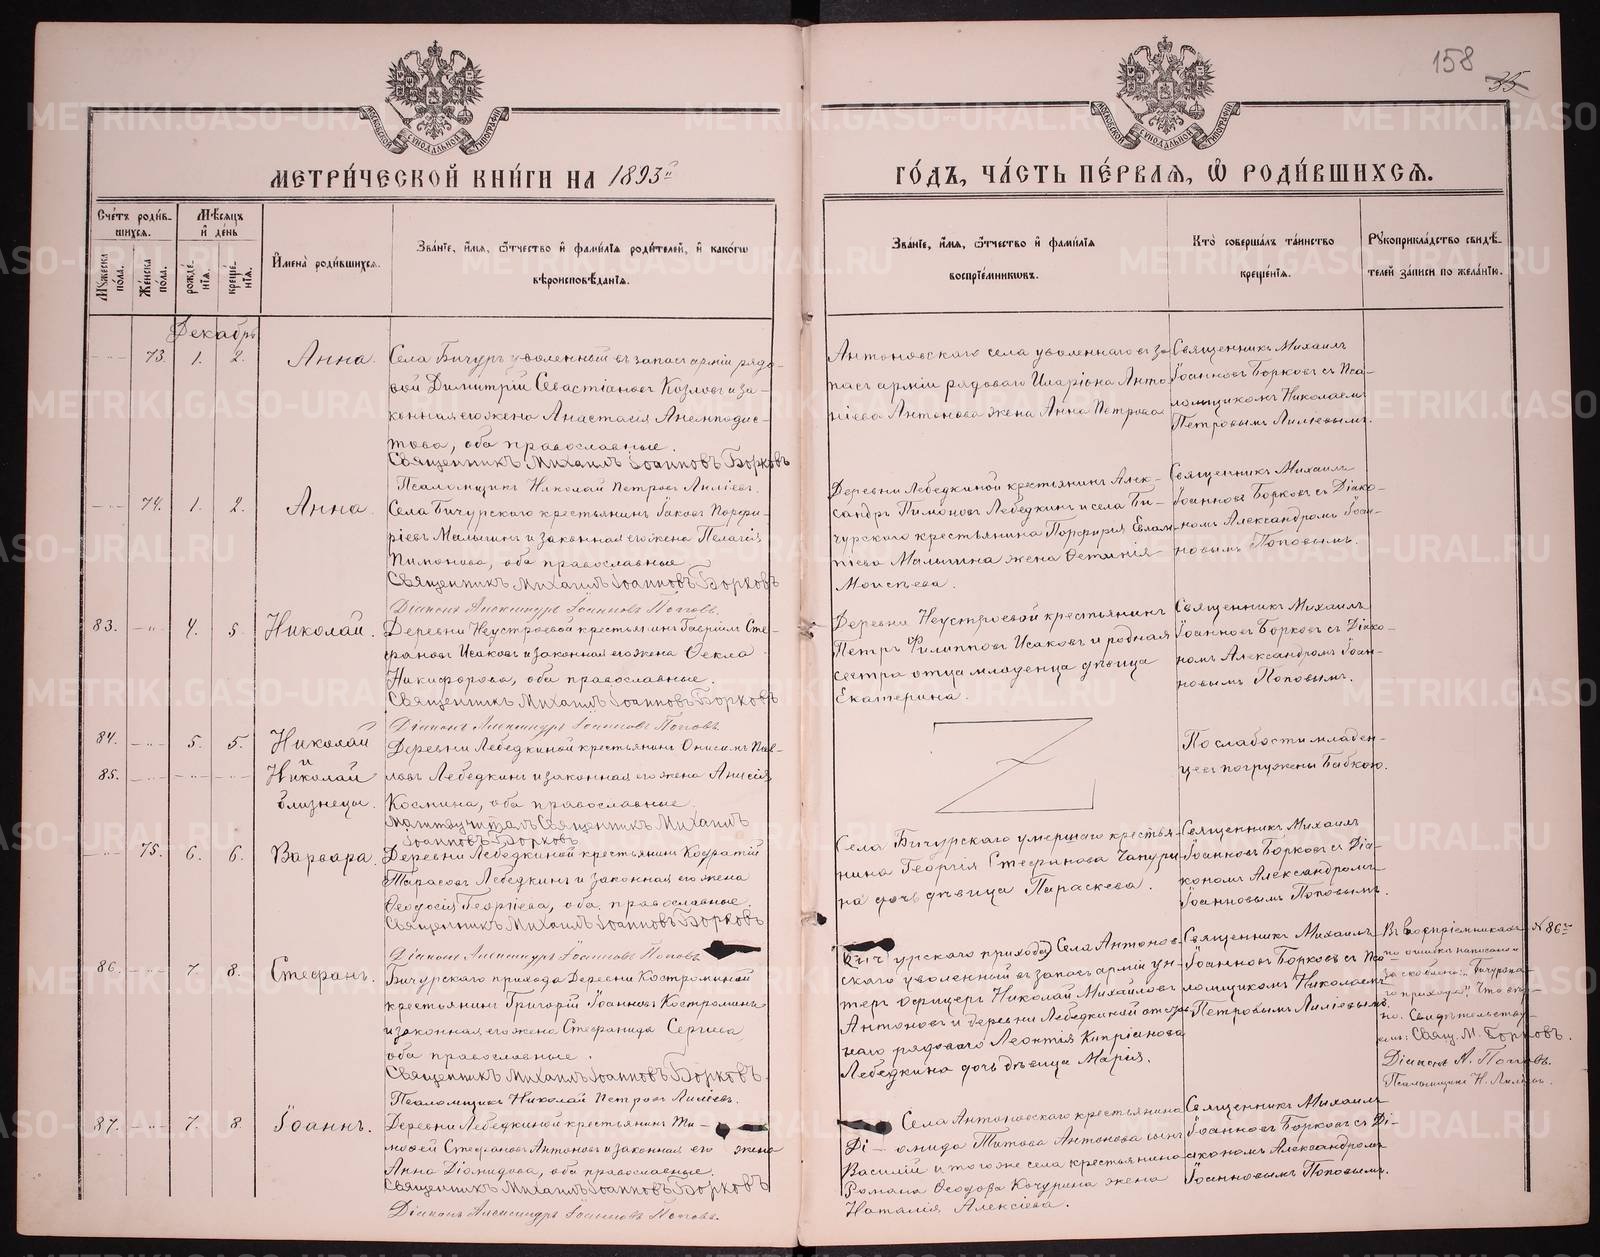 158
35
МОСКОВСКОЙ СѴНОДАЛЬНОЙ ТИПОГРАФІИ
МОСКОВСКОЙ СѴНОДАЛЬНОЙ ТИПОГРАФІИ
МЕТРИ́ЧЕСКОЙ КНИ́ГИ НА 1893й
ГО́ДЪ, ЧА́СТЬ ПЕ́РВАЯ, Ѽ РОДИ́ВШИХСЯ.
Сче́тъ роди́в-
шихся.
Мꙋжеска по́ла.
Же́нска по́ла.
Мѣ́сяцъ
и҆ де́нь
рожде́нїя.
креще́нїя.
И҆мена̀ роди́вшихся.
Зва́нїе, и҆́мя, ѻ҆́тчество и҆ фами́лїя роди́телей, и҆ како́гѡ
вѣроисповѣ́данїя.
Зва́нїе, и҆́мя, ѻ҆́тчество и҆ фами́лїя
воспрїе́мниковъ.
Кто̀ соверша́лъ та́инство
креще́нїя.
Рꙋкоприкла́дство свидѣ́-
телей за́писи по жела́нїю.
Декабрь
73. 1. 2. Анна.
Села Бичуръ уволенный въ запасъ арміи рядо-
вой Димитрій Севастіановъ Козловъ и за-
конная его жена Анастасія Анемподис-
това, оба православные.
Священникъ Михаилъ Іоанновъ Борковъ
Псаломщикъ Николай Петровъ Лиліевъ.
Антоновскаго села уволеннаго въ за-
пасъ арміи рядоваго Иларіона Анто-
ніева Антонова жена Анна Петрова
Священникъ Михаилъ
Іоанновъ Борковъ съ Пса-
ломщикомъ Николаемъ
Петровымъ Лиліевымъ.
74. 1. 2. Анна.
Села Бичурскаго крестьянинъ Іаковъ Порфи-
ріевъ Малыгинъ и законная его жена Пелагія
Пимонова, оба православные
Священникъ Михаилъ Іоанновъ Борковъ
Діаконъ Александръ Іоанновъ Поповъ.
Деревни Лебедкиной крестьянинъ Алек-
сандръ Пимоновъ Лебедкинъ и села Би-
чурскаго крестьянина Порфирія Евлам-
піева Малыгина жена Фетинія
Моисѣева.
Священникъ Михаилъ
Іоанновъ Борковъ съ Діако-
номъ Александромъ Іоан-
новымъ Поповымъ.
83. 4. 5. Николай.
Деревни Неустроевой крестьянинъ Гавріилъ Сте-
фановъ Исаковъ и законная его жена Ѳекла
Никифорова, оба православные.
Священникъ Михаилъ Іоанновъ Борковъ
Діаконъ Александръ Іоанновъ Поповъ.
Деревни Неустроевой крестьянинъ
Петръ Филипповъ Исаковъ и родная
сестра отца младенца дѣвица
Екатерина.
Священникъ Михаилъ
Іоанновъ Борковъ съ Діако-
номъ Александромъ Іоан-
новымъ Поповымъ.
84. 5. 5. Николай
и
85. Николай
близнецы.
Деревни Лебедкиной крестьянинъ Онисимъ Пав-
ловъ Лебедкинъ и законная его жена Анисія
Космина, оба православные
Молитву читалъ Священникъ Михаилъ
Іоанновъ Борковъ
По слабости младен-
цевъ погружены бабкою.
75. 6. 6. Варвара.
Деревни Лебедкиной крестьянинъ Кодратій
Тарасовъ Лебедкинъ и законная его жена
Ѳеодосія Георгіева, оба православные.
Священникъ Михаилъ Іоанновъ Борковъ
Діаконъ Александръ Іоанновъ Поповъ
Села Бичурскаго умершаго крестья-
нина Георгія Стефанова Чапури-
на дочь дѣвица Параскева.
Священникъ Михаилъ
Іоанновъ Борковъ съ Діа-
кономъ Александромъ
Іоанновымъ Поповымъ.
86. 7. 8. Стефанъ.
Бичурскаго прихода Деревни Костроминой
крестьянинъ Григорій Іоанновъ Костроминъ
и законная его жена Стефанида Сергіева,
оба православные.
Священникъ Михаилъ Іоанновъ Борковъ.
Псаломщикъ Николай Петровъ Лиліевъ.
(Бичурскаго прихода) Села Антонов-
скаго уволенный въ запасъ арміи ун-
теръ офицеръ Николай Михайловъ
Антоновъ и деревни Лебедкиной
рядоваго Леонтія Кипріанова
Лебедкина дочь дѣвица Марія.
Священникъ Михаилъ
Іоанновъ Борковъ съ Пса-
ломщикомъ Николаемъ
Петровымъ Лиліевымъ.
Въ воспріемникахъ № 86го
по ошибкѣ написано и
заскоблено: "Бичурска-
го прихода". Что вѣр-
но. Свидѣтельству-
емъ: Свящ. М. Борковъ.
Діаконъ А. Поповъ.
Псаломщикъ Н. Лиліевъ.
87. 7. 8. Іоаннъ.
Деревни Лебедкиной крестьянинъ Ти-
моѳей Стефановъ Антоновъ и законная его жена
Анна Діомидова, оба православные.
Священникъ Михаилъ Іоанновъ Борковъ
Діаконъ Александръ Іоанновъ Поповъ.
Села Антоновскаго крестьянина
Ді-омида Титова Антонова сынъ
Василій и того же села крестьянина
Романа Ѳеодова Кочурина жена
Наталія Алексіева.
Священникъ Михаилъ
Іоанновъ Борковъ съ Ді-
акономъ Александромъ
Іоанновымъ Поповымъ.
METRIKI.GASO-URAL.RU